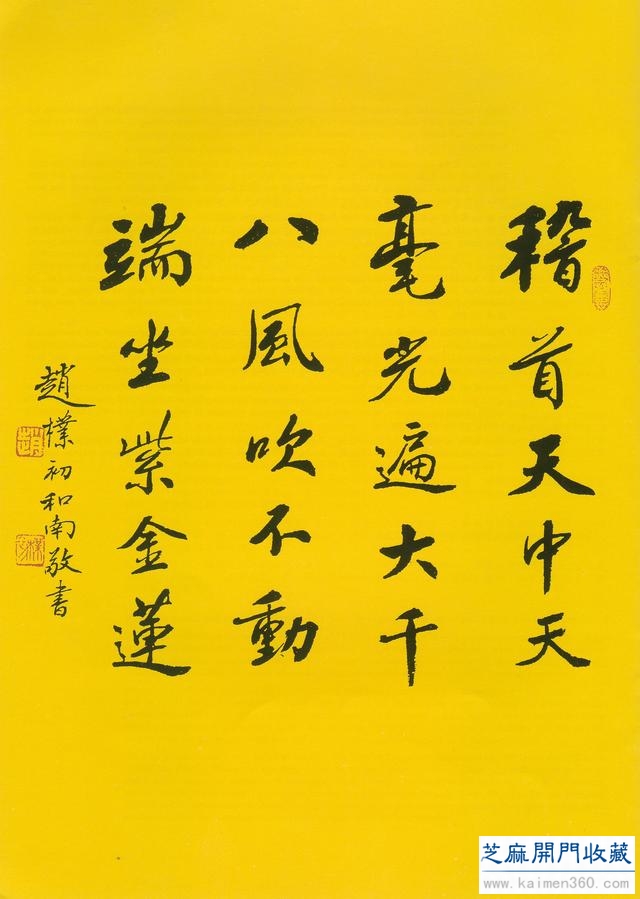 稽首天中天
毫光遍大千
八風吹不動
端坐紫金蓮
趙樸初和南敬書
趙
樸初
芝麻開門收藏
www.kaimen360.com